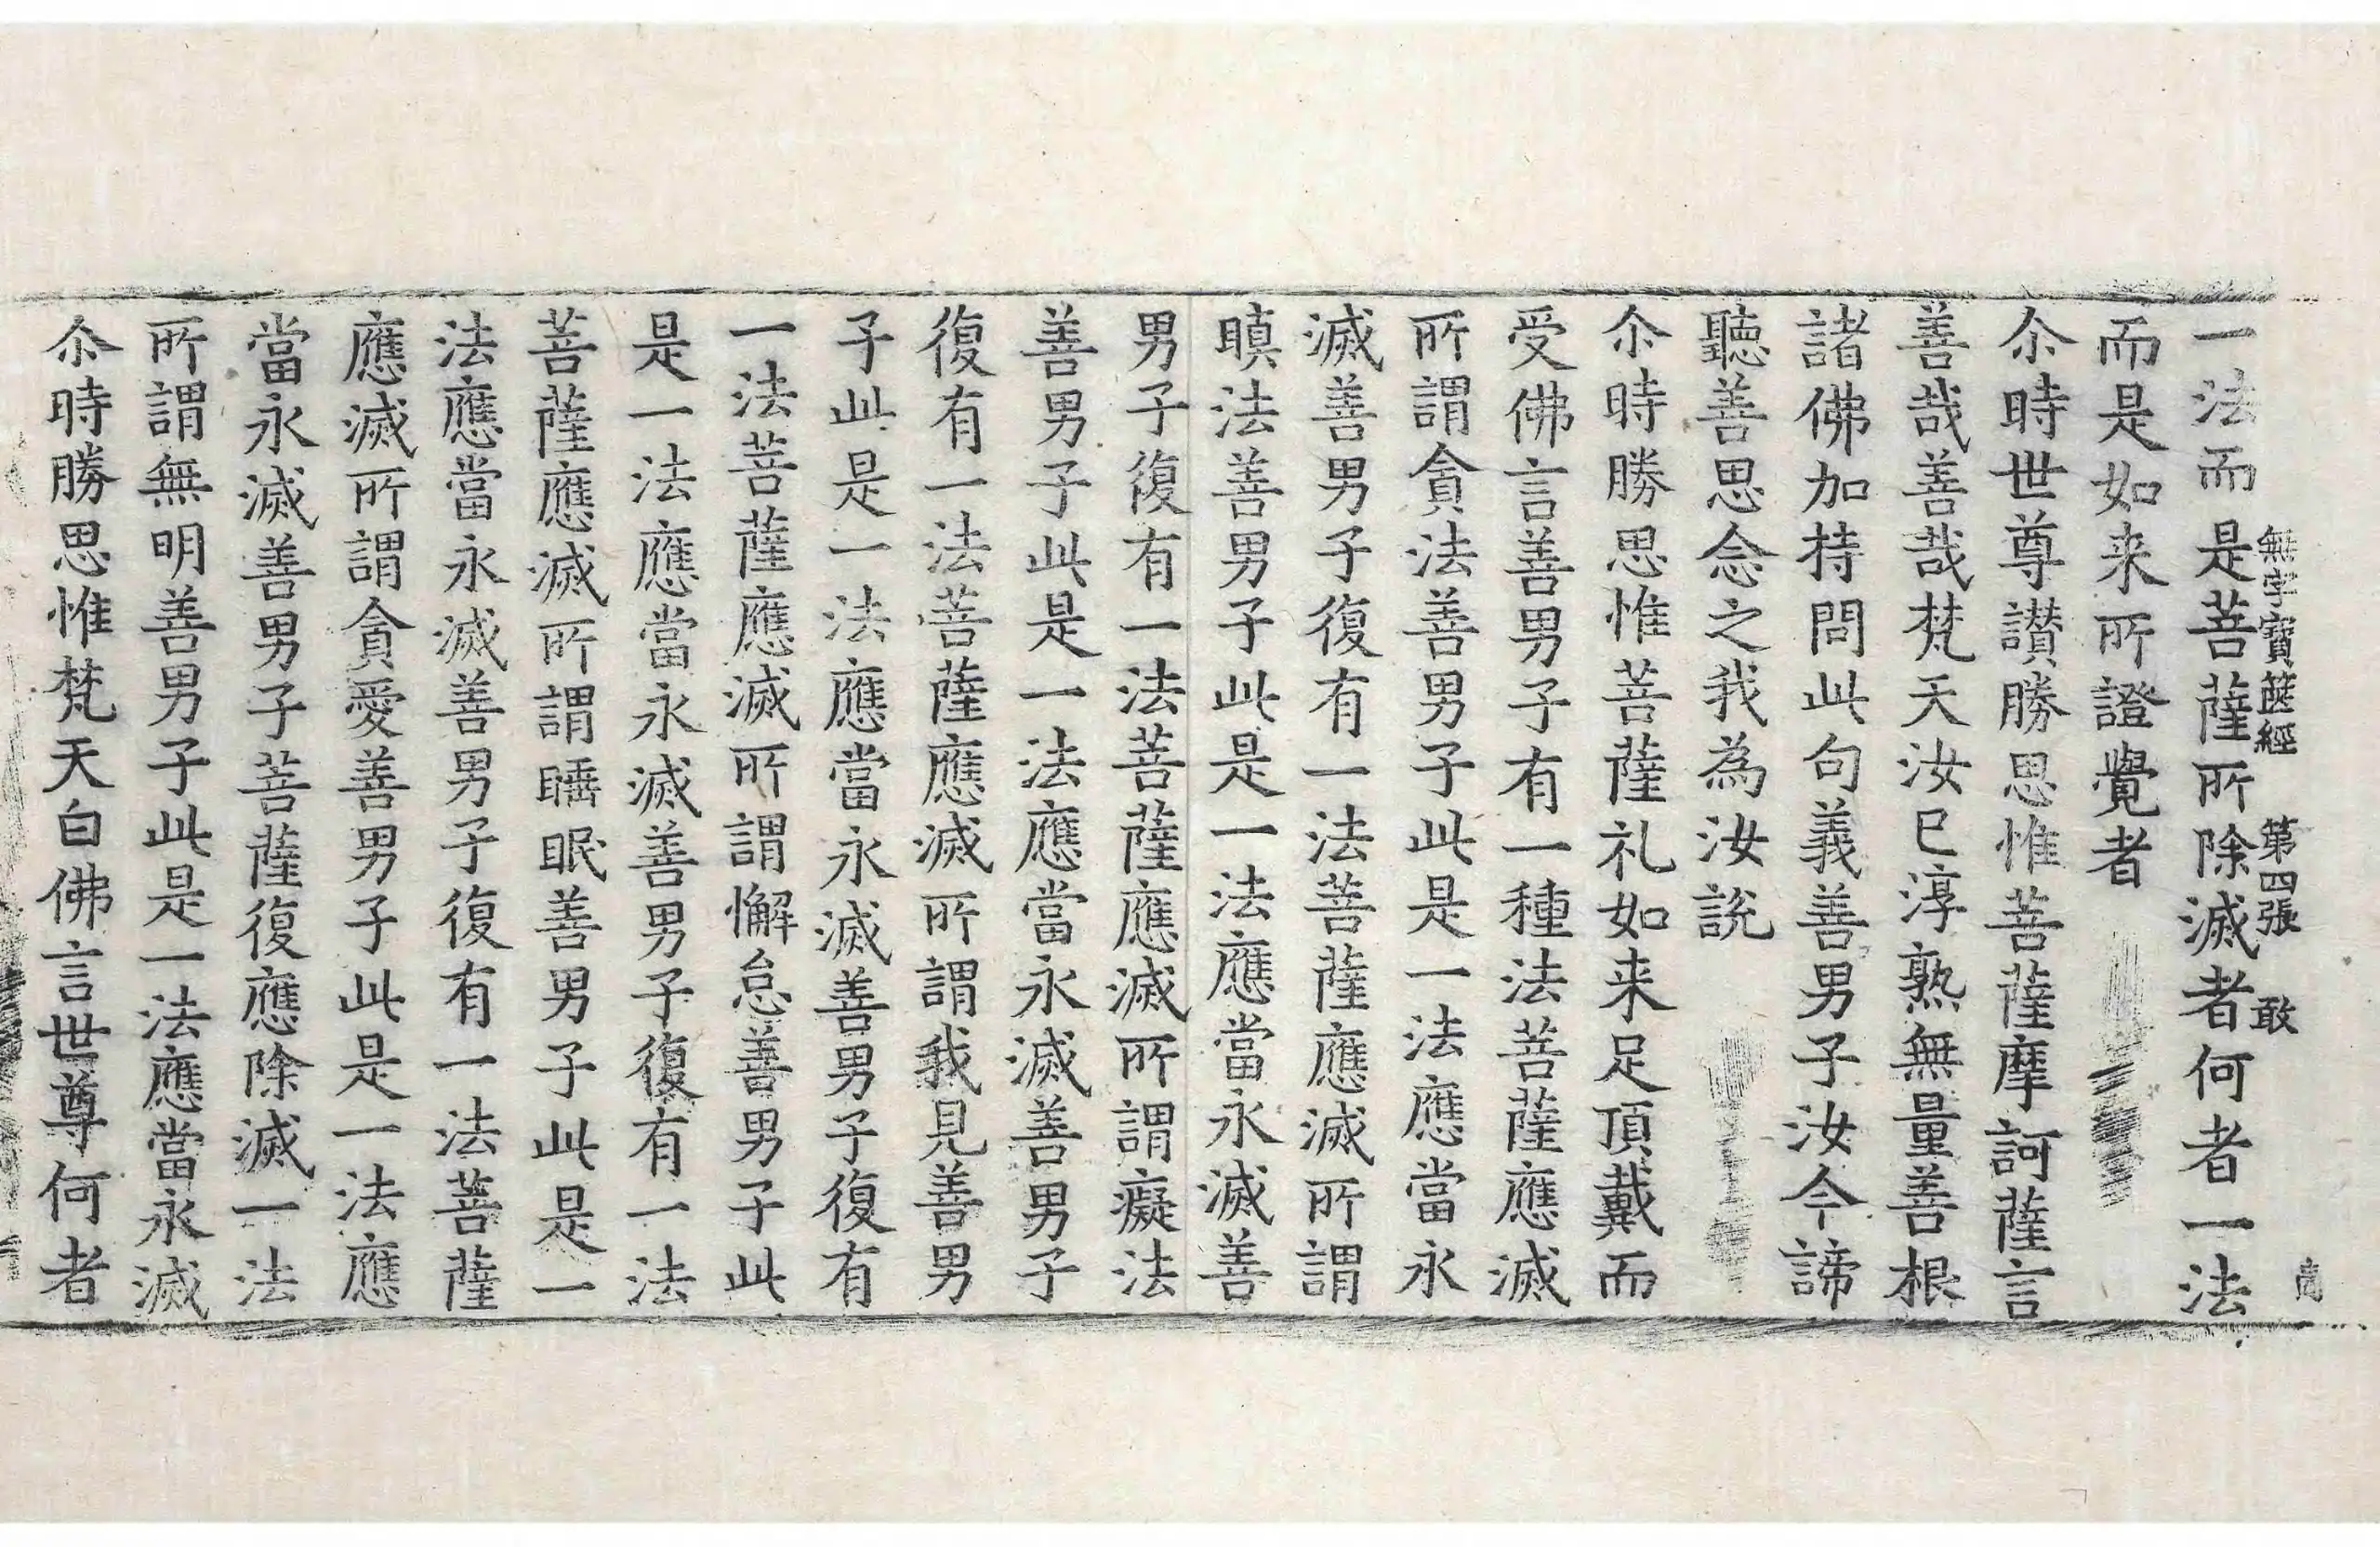 無字寶篋經　第四張　敢
一法而是菩薩所除滅者何者一法
而是如来所證覺者
尒時世尊讃勝思惟菩薩摩訶薩言
善哉善哉梵天汝已淳熟無量善根
諸佛加持問此句義善男子汝今諦
聽善思念之我為汝說
尒時勝思惟菩薩礼如来足頂戴而
受佛言善男子有一種法菩薩應滅
所謂貪法善男子此是一法應當永
滅善男子復有一法菩薩應滅所謂
瞋法善男子此是一法應當永滅善
男子復有一法菩薩應滅所謂癡法
善男子此是一法應當永滅善男子
復有一法菩薩應滅所謂我見善男
子此是一法應當永滅善男子復有
一法菩薩應滅所謂懈怠善男子此
是一法應當永滅善男子復有一法
菩薩應滅所謂睡眠善男子此是一
法應當永滅善男子復有一法菩薩
應滅所謂貪愛善男子此是一法應
當永滅善男子菩薩復應除滅一法
所謂無明善男子此是一法應當永滅
尒時勝思惟梵天白佛言世尊何者